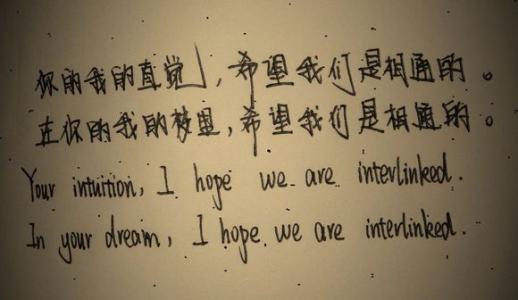 你的我的直觉，希望我们是相通的。
在你的我的梦里，希望我们是相通的。
Your intuition, I hope we are interlinked.
In your dream, I hope we are interlinked.